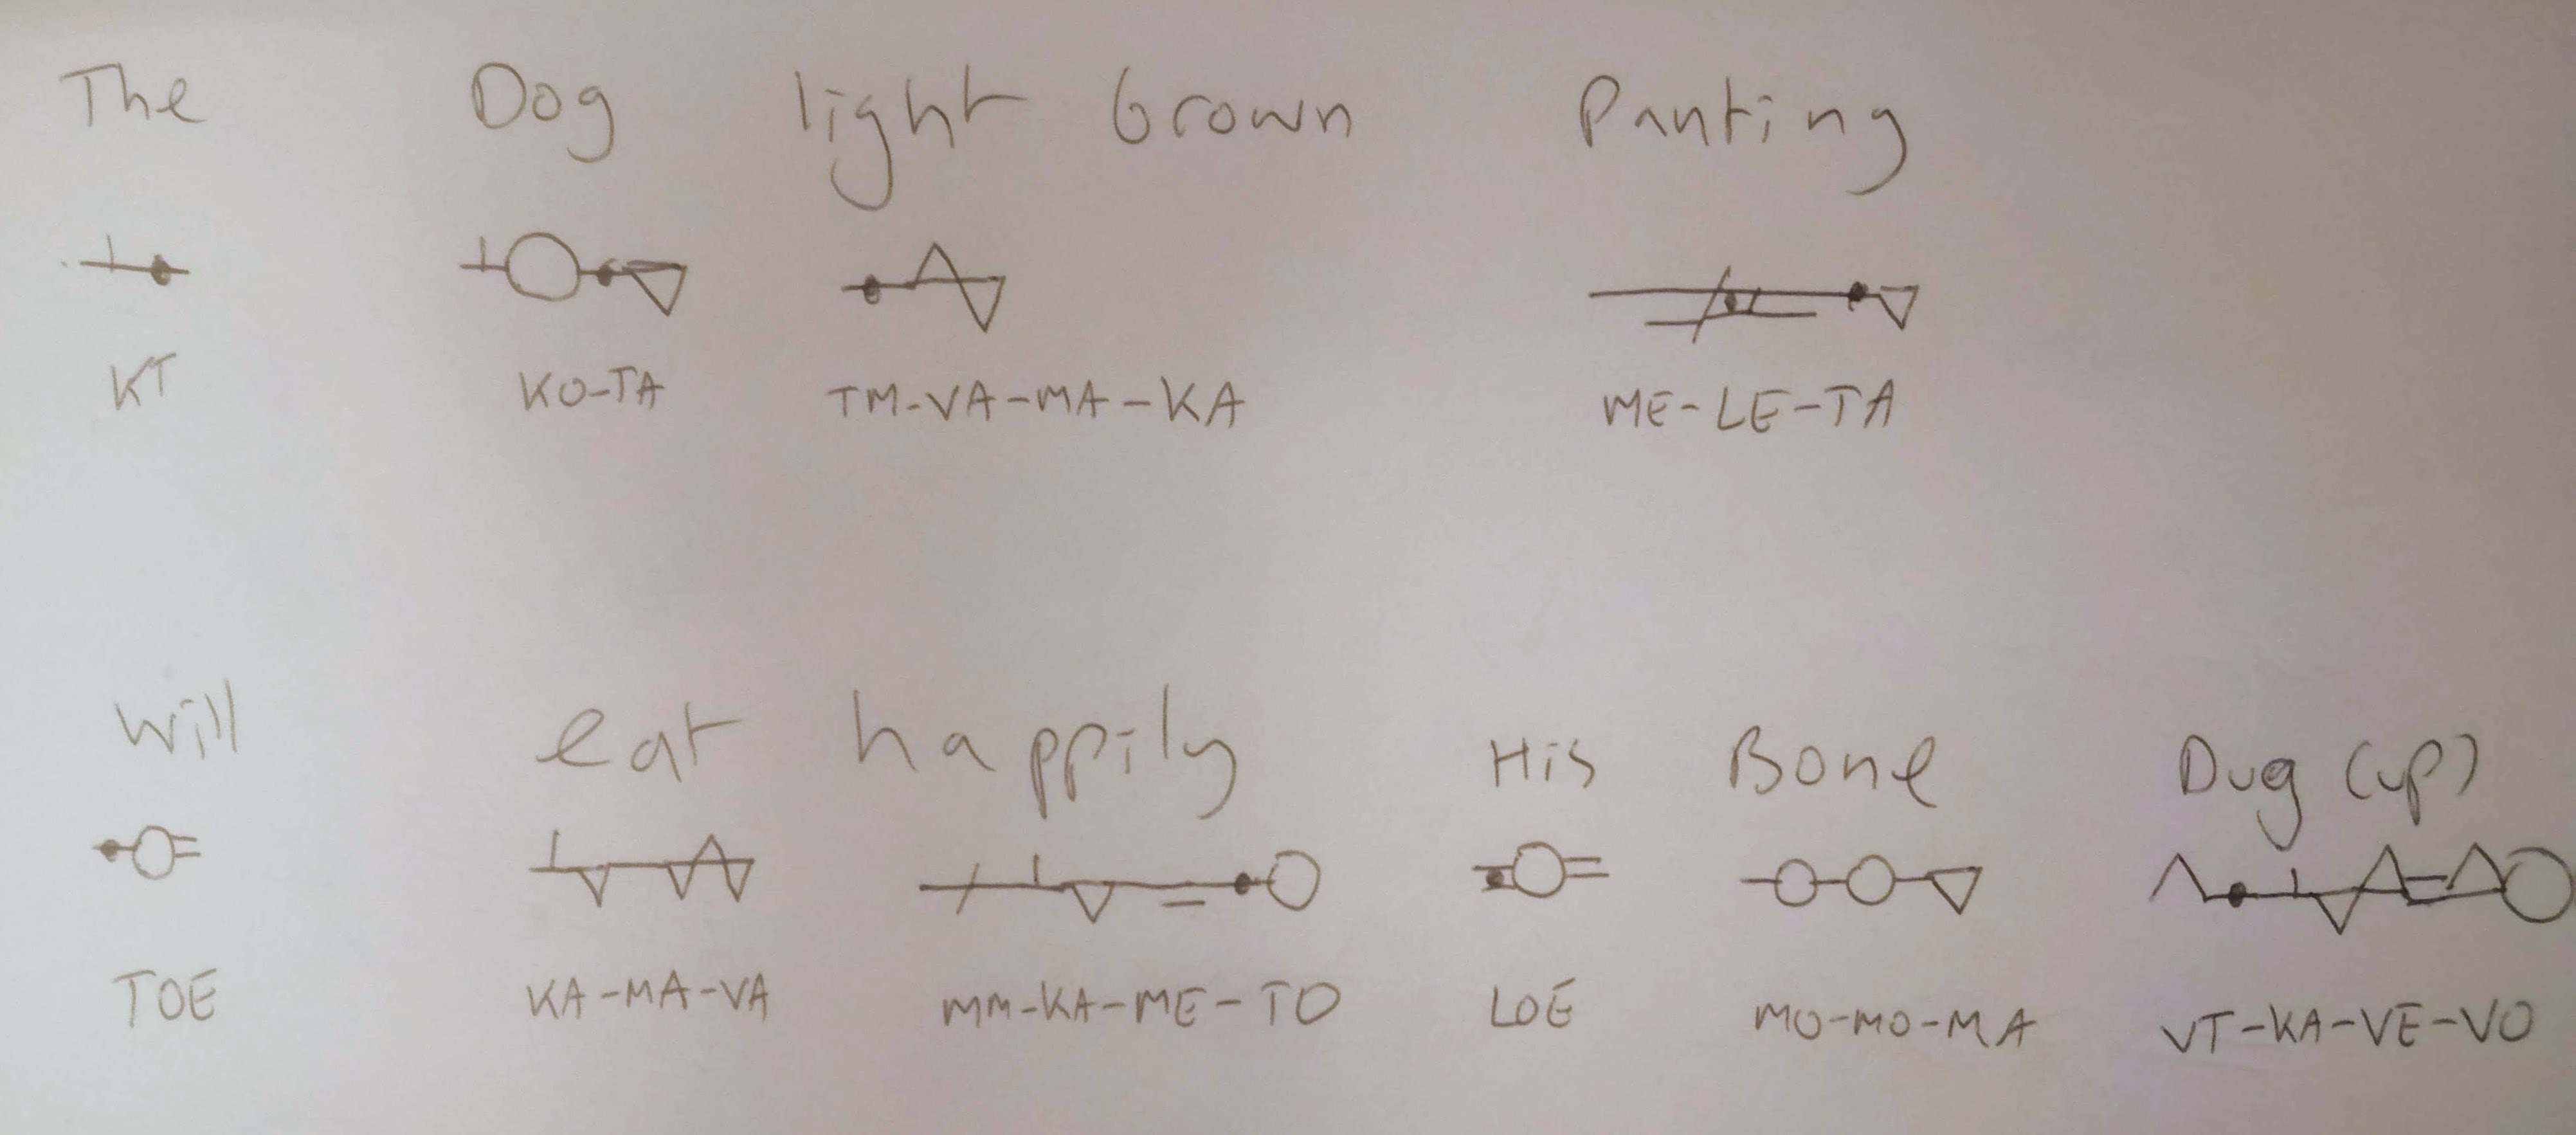 The Dog light brown Panting
KT KO-TA TM-VA-MA-KA ME-LE-TA
will eat happily His Bone Dug (up)
TOE KA-MA-VA MM-KA-ME-TO LOE MO-MO-MA VT-KA-VE-VO